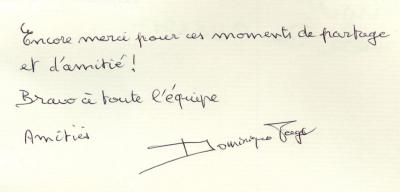 Encore merci pour ces moments de partage
et d'amitié !
Bravo à toute l'équipe
Amitiés
Dominique